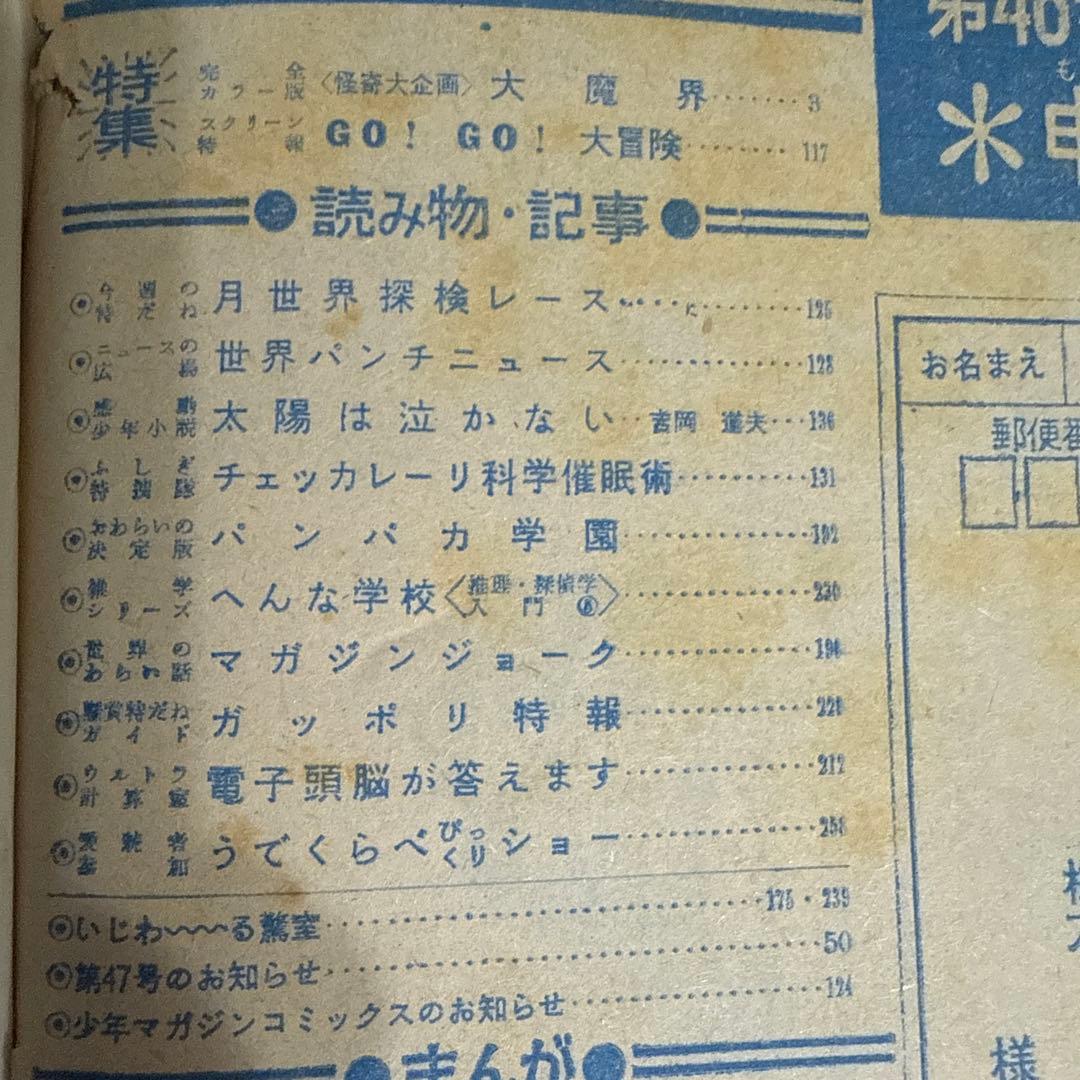 特集
完全カラー版 〈怪奇大企画〉 大魔界‥‥‥ 3
スクリーン特報 GO! GO! 大冒険‥‥‥‥ 117
●読み物・記事●
◉今週の特だね 月世界探検レース‥‥‥‥125
◉ニュースの広場 世界パンチニュース‥‥‥‥128
◉感動少年小説 太陽は泣かない 吉岡道夫‥136
◉ふしぎ特捜隊 チェッカレーリ科学催眠術‥‥‥‥131
◉おわらいの決定版 パンパカ学園‥‥‥‥192
◉雑学シリーズ へんな学校〈推理・探偵学入門〉‥‥‥‥230
◉世界のわらい話 マガジンジョーク‥‥‥‥
◉懸賞特だねガイド ガッポリ特報‥‥‥‥
◉ウルトラ計算室 電子頭脳が答えます‥‥‥‥212
◉愛読者参加 うでくらべびっくりショー‥‥‥‥258
◉いじわ~~~~る驚室‥‥‥‥175・239
◉第47号のお知らせ‥‥‥‥50
◉少年マガジンコミックスのお知らせ‥‥‥‥124
●まんが●
お名まえ
郵便番
様